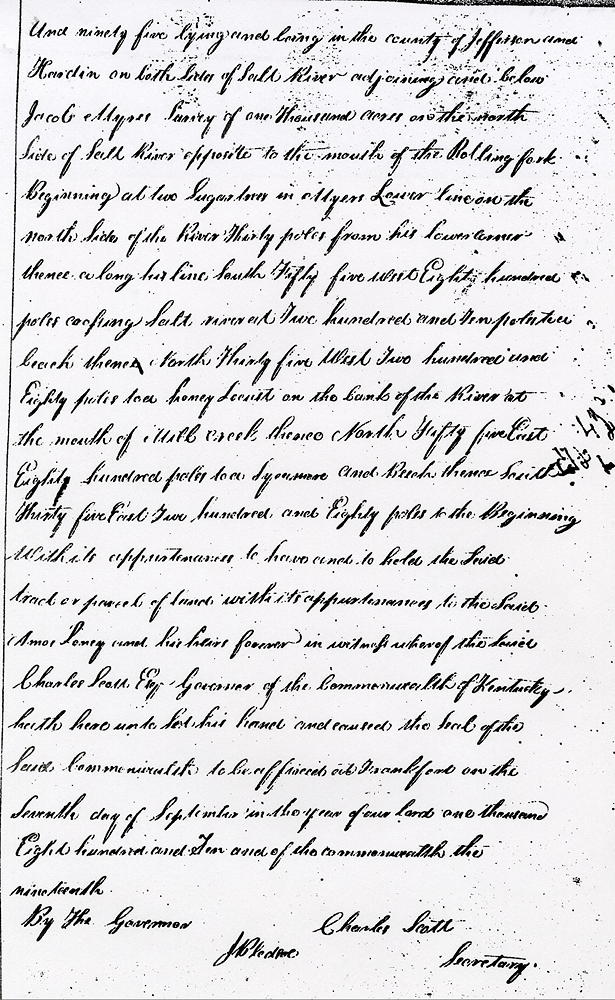 And ninety five lying and being in the county of Jefferson and
Hardin on both sides of Salt River adjoining and below
Jacob Myres Survey of one Thousand acres on the north
Side of Salt River opposite to the mouth of the Rolling fork
Beginning at two Sugartrees in Myers Lower line on the
north Side of the River Thirty poles from his lower corner
thence along his line South Fifty five West Eighty hundred
poles crossing Salt river at Two hundred and Ten poles to a
beach thence North Thirty five West Two hundred and
Eighty poles to a honey Locust on the bank of the River at
the mouth of Mill creek thence North Fifty five East
Eighty hundred poles to a Sycamore and Beech thence South
Thirty five East Two hundred and Eighty poles to the Beginning
With its appurtenances to have and to hold the Said
tract or parcel of land with its appurtenances to the Said
Amos and his heirs forever in witness whereof the Said
Charles Scott Esq Governor of the Commonwealth of Kentucky
hath here unto Set his hand and caused the Seal of the
Said Commonwealth to be affixed at Frankfort on the
Seventh day of September in the year of our lord one thousand
Eight hundred and Ten and of the commonwealth the
nineteenth
By The Governor Charles Scott
Secretary.